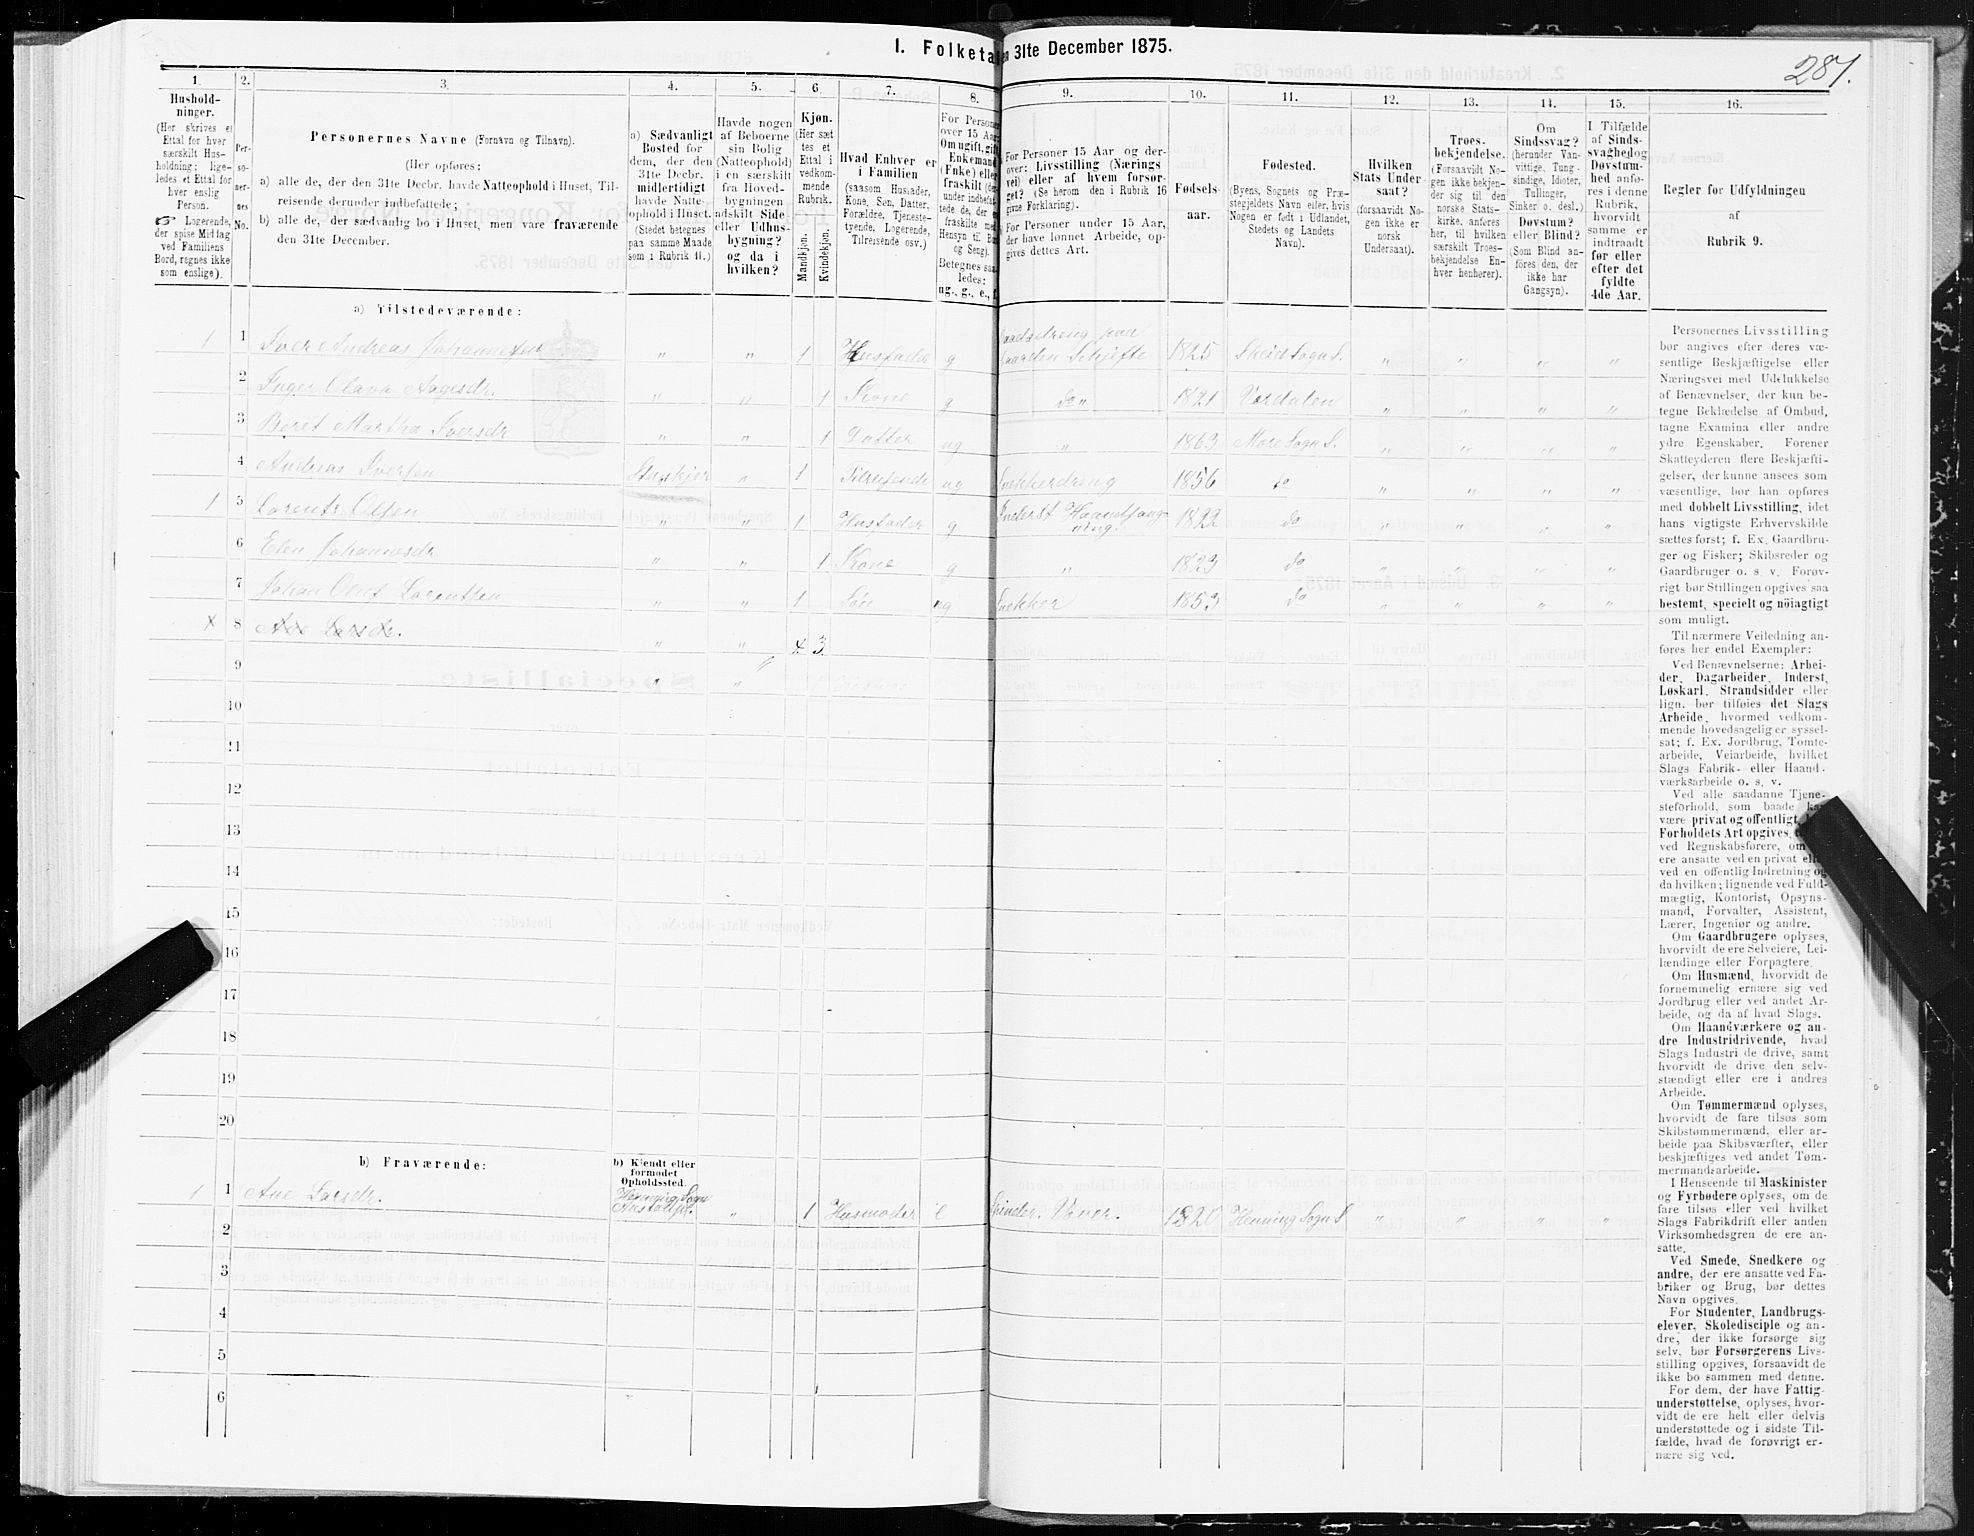 281.
I. Folketal
en 31te December 1875.
1.
2.
3.
4.
5.
6.
7.
8.
9.
10.
11.
12.
13.
14.
15.
16.
Hushold-
ninger.
(Her skrives et
Ettal for hver
særskilt Hus-
holdning; lige-
ledes et Ettal for
hver enslig
Person.
☞ Logerende,
der spise Middag
ved Familiens
Bord, regnes ikke
som enslige).
Per-
so-
ner-
nes
No.
Personernes Navne (Fornavn og Tilnavn).
(Her opføres:
a) alle de, der den 31te Decbr. havde Natteophold i Huset, Til-
reisende derunder indbefattede;
b) alle de, der sædvanlig bo i Huset, men vare fraværende
den 31te December.
a) Sædvanligt
Bosted for
dem, der den
31te Decbr.
midlertidigt
havde Natte-
ophold i Huset.
(Stedet betegnes
paa samme Maade
som i Rubrik 11.)
Havde nogen
af Beboerne
sin Bolig
(Natteophold)
i en særskilt
fra Hoved-
bygningen
adskilt Side-
eller Udhus-
bygning?
og da i
hvilken?
Kjøn.
(Her sæt-
tes et
Ettal i
vedkom-
mende
Rubrik.
Mandkjøn.
Kvindekjøn.
Hvad Enhver er
i Familien
(saasom Husfader,
Kone, Søn, Datter,
Forældre, Tjeneste-
tyende, Logerende,
Tilreisende osv.)
For Personer
over 15 Aar:
Om ugift, gift,
Enkemand
(Enke) eller
fraskilt
Betegnes saa-
ledes:
ug., g., e., f.
For Personer 15 Aar og der-
over: Livsstilling (Nærings
vei) eller af hvem forsør-
get? (Se herom den i Rubrik 16
givne Forklaring).
For Personer under 15 Aar,
der have lønnet Arbeide, op-
gives dettes Art.
Fødsels-
aar.
Fødested.
(Byens, Sognets og Præ-
stegjeldets Navn eller, hvis
Nogen er født i Udlandet,
Stedets og Landets
Navn).
Hvilken
Stats Under-
saat?
(forsaavidt No-
gen ikke er
norsk
Undersaat).
Troes-
bekjendelse.
(Forsaavidt No-
gen ikke bekjen-
der sig til den
norske Stats-
kirke, anføres
her, til hvilken
særskilt Troes-
bekjendelse En-
hver henhører).
Om
Sindssvag?
(herunder Van-
vittige, Tung-
sindige, Idioter,
Tullinger,
Sinker o. desl.)
Døvstum?
eller Blind?
(Som Blind an-
føres den, der
ikke har
Gangsyn).
I Tilfælde
af Sinds-
svaghed og
Døvstum-
hed anfø-
res i denne
Rubrik,
hvorvidt
samme er
indtraadt
før eller
efter det
fyldte
4de Aar.
Regler for Udfyldningen
af
Rubrik 9.
a) Tilstedeværende:
1 1 Iver Andreas Johannesen " " 1 Husfader g Gaarden Schjefte 1825 Skeid Sogn S. " " " "
2 Inger Olava Aagesdr. " " 1 Kone g do " 1821 Værdalen " " " "
3 Beret Martha Iversdr " " 1 Datter ug " 1863 Mære Sogn S. " " " "
4 Andreas Iversen Stenkjer " 1 Tilreisende ug Snekkerdreng 1856 do " " " "
1 5 Lorents Olsen " " 1 Husfader g Inderst Haandlang-
ning. 1822 do " " " "
6 Elen Johannesdr. " " 1 Kone g " 1823 do " " " "
7 Johan Olaf Lorentsen " " 1 Søn ug Snekker 1853 do " " " "
x 8 Ane Larsdr. " " 4 3
9 " "
10
11
12
13
14
15
16
17
18
19
20
b) Fraværende:
b) Kjendt eller
formodet
Opholdssted.
1 1 Ane Larsdr. Henning Sogn " 1 Husmoder e Spinder. Væver. 1820 Henning Sogn S. " " " "
2
3
4
5
6
Personernes Livsstilling
bør angives efter deres væ-
sentlige Beskjæftigelse eller
Næringsvei med Udelukkelse
af Benævnelser, der kun be-
tegne Beklædelse af Ombud,
tagne Examina eller andre
ydre Egenskaber. Forener
Skatteyderen flere Beskjæfti-
gelser, der kunne ansees som
væsentlige, bør han opføres
med dobbelt Livsstilling, idet
hans vigtigste Erhvervskilde
sættes først; f. Ex. Gaardbru-
ger og Fisker; Skibsreder og
Gaardbruger o. s. v. Forøv-
rigt bør Stillingen opgives saa
bestemt, specielt og nöiagtigt
som muligt.
Til nærmere Veiledning an-
føres her endel Exempler:
Ved Benævnelserne: Arbei-
der, Dagarbeider, Inderst,
Løskarl, Strandsidder eller
lign. bør tilføies det Slags
Arbeide, hvormed vedkom-
mende hovedsagelig er syssel-
sat; f. Ex. Jordbrug, Tomte-
arbeide, Veiarbeide, hvilket
Slags Fabrik- eller Haand-
værksarbeide o. s. v.
Ved alle saadanne Tjene-
steforhold, som baade kan
være privat og offentligt,
Forholdets Art opgives,
ved Regnskabsførere, om
ere ansatte ved en privat eller
ved en offentlig Indretning og
da hvilken; lignende ved Fuld-
mægtig, Kontorist, Opsyns-
mand, Forvalter, Assistent,
Lærer, Ingeniør og andre.
Om Gaardbrugere oplyses,
hvorvidt de ere Selveiere, Lei-
lændinge eller Forpagtere.
Om Husmænd, hvorvidt de
fornemmelig ernære sig ved
Jordbrug eller ved andet Ar-
beide, og da af hvad Slags.
Om Haandværkere og an-
dre Industridrivende, hvad
Slags Industri de drive, samt
hvorvidt de drive den selv-
stændigt eller ere i andres
Arbeide.
Om Tømmermænd oplyses,
hvorvidt de fare tilsøs som
Skibstømmermænd, eller ar-
beide paa Skibsværfter, eller
beskjæftiges ved andet Tøm-
mermandsarbeide.
I Henseende til Maskinister
og Fyrbødere oplyses, om de
fare tilsøs eller ved hvilket
Slags Fabrikdrift eller anden
Virksomhedsgren de ere an-
satte.
Ved Smede, Snedkere og
andre, der ere ansatte ved Fa-
briker og Brug, bør dettes
Navn opgives.
For Studenter, Landbrugs-
elever, Skoledisciple og an-
dre, der ikke forsørge sig
selv, bør Forsørgerens Livs-
stilling opgives, forsaavidt de
ikke bo sammen med denne.
For dem, der have Fattig-
understøttelse, oplyses, hvor-
vidt de ere helt eller delvis
understøttede og i sidste Til-
fælde, hvad de forøvrigt er-
nære sig ved.